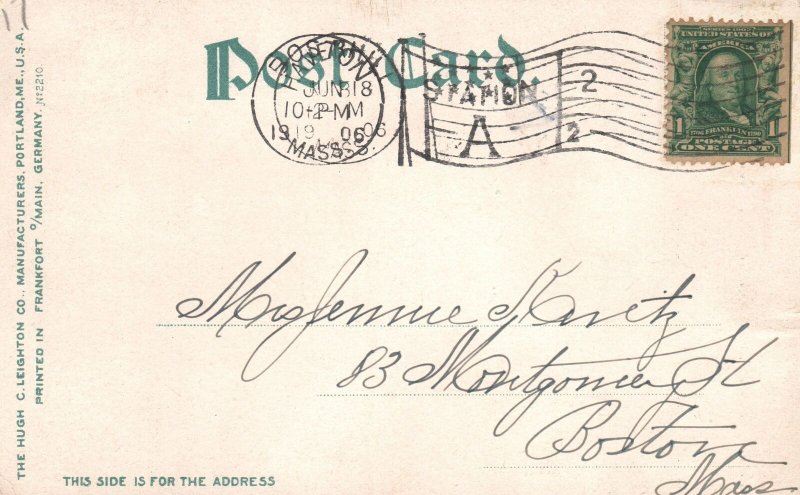 Post Card.
BOSTON
JUN 18
10
PM
19 06
MASS
STATION
A
2
2
SERIES 1902
UNITED STATES OF
AMERICA
1 1
1706 FRANKLIN 1790
POSTAGE
ONE CENT
THE HUGH C. LEIGHTON CO., MANUFACTURERS, PORTLAND, ME., U.S.A.
PRINTED IN FRANKFORT O/MAIN, GERMANY. No 2210.
Jennie
83 Montgomery St
Boston
Mass
THIS SIDE IS FOR THE ADDRESS